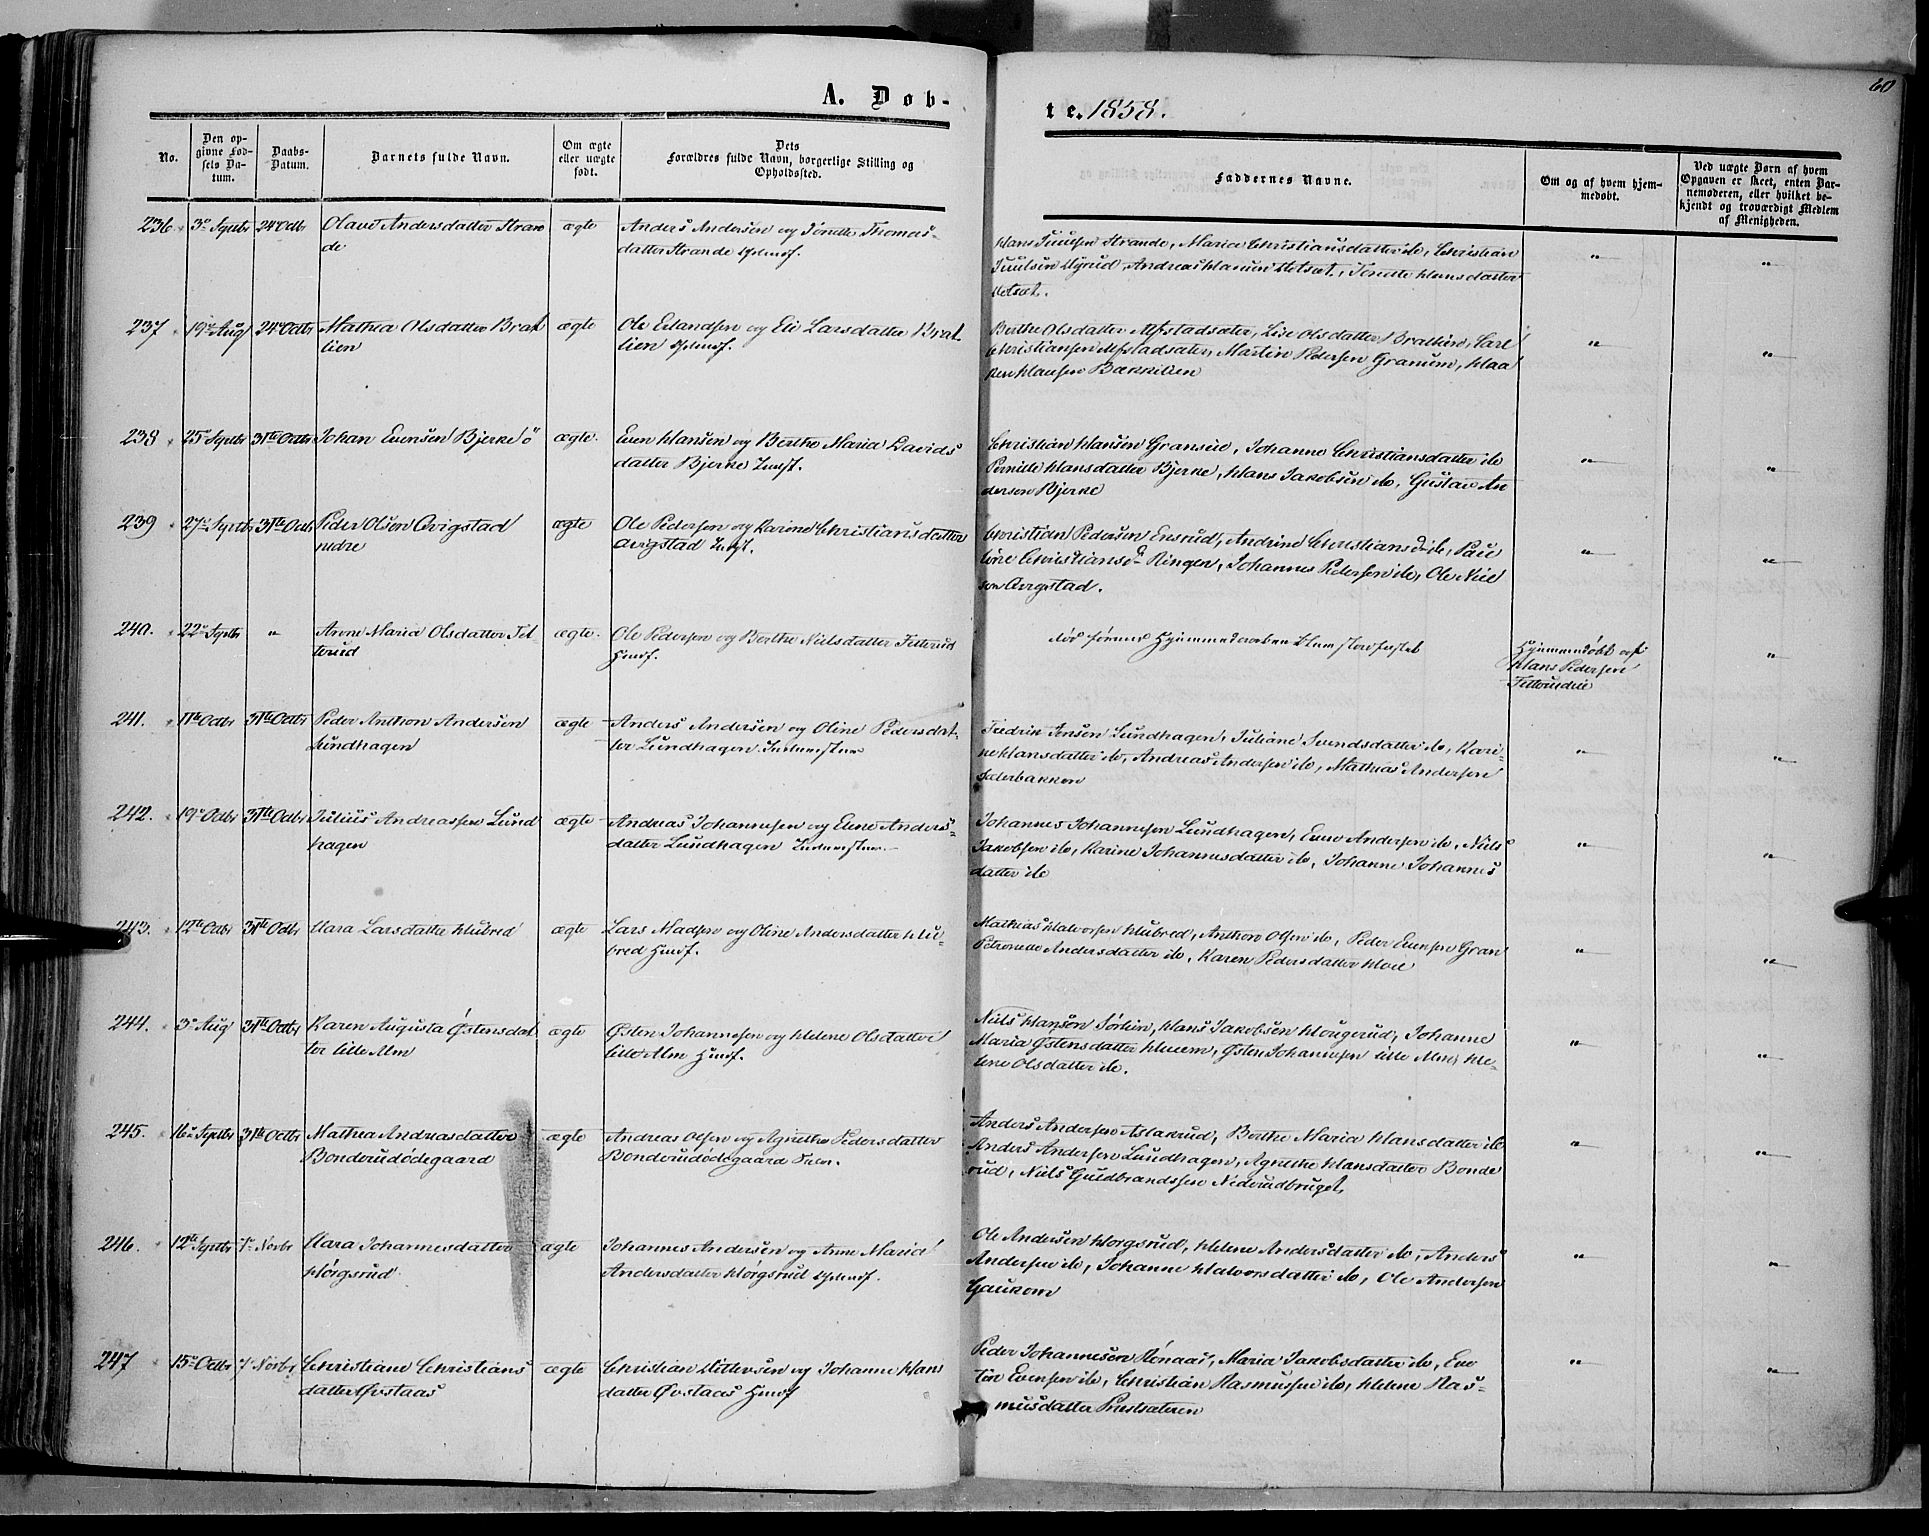 60
A. Døb-
te. 1858.
No.
Den op-
givne Fød-
sels Da-
tum.
Daabs-
Datum.
Barnets fulde Navn.
Om ægte
eller uægte
født.
Dets
Forældres fulde Navn, borgerlige Stilling og
Opholdssted.
Faddernes Navne.
Om og af hvem hjem-
medøbt.
Ved uægte Børn af hvem
Opgaven er skeet, enten Bar-
nemoderen, eller hvilket be-
kjendt og troværdigt Medlem
af Menigheden.
236. 3 Septbr 24 Octbr Olave Andersdatter Stran
de
ægte
Anders Andersen og Tonette Thomas-
datter Strande
Hans Juulsen Strande, Maria Christiansdatter do, Christian
Juulsen, Andreas Hansen, Tonette Hansdatter
237. 19 Aug 24 Octbr Mathea Olsdatter Brat
lien
ægte
Ole Erlandsen og Eli Larsdatter Brat-
lien
Berthe Olsdatter Alfstadsæter, Lise Olsdatter Bratlien, Carl
Christiansen Alfstadsæter, Martin Pedersen Granum, Haa
ken Hansen Bakkelien
238. 25 Septbr 31te Octbr Johan Evensen Bjerke
ægte.
Even Hansen og Berthe Maria Davids
datter Bjerke
Christian Hansen, Johanne Christiansdatter do
Pernille Hansdatter Bjerke, Hans Jakobsen do, Gustav An
dersen Bjerke
239. 27 Septbr 31te Octbr Peder Olsen Avigstad
nedre
ægte
Ole Pedersen og Karine Christiansdatter
Avigstad
Christian Pedersen Ensrud, Andrine Christiansd. do, Pau
line Christiansd. Ringen, Johannes Pedersen do, Ole Niel
sen Avigstad.
240. 22 Septbr " Anne Maria Olsdatter Fet
terud
ægte.
Ole Pedersen og Berthe Nielsdatter Fetterud
Huusf.
død førend Hjemmedaaben blev stadfæstet
Hjemmedøbt af
Hans Pedersen
241. 11te Octbr 31te Octbr Peder Anthon Andersen
Lundhagen
ægte
Anders Andersen og Oline Pedersdat-
ter Lundhagen
Fredrik Jensen Lundhagen, Juliane Svendsdatter do, Kari-
ne Hansdatter do, Andreas Andersen do, Mathias Andersen
242. 19 Octbr 31te Octbr Julius Andreassen Lund
hagen
ægte
Andreas Johannesen og Eline Anders-
datter Lundhagen
Johannes Johannesen Lundhagen, Even Andersen do, Niels
Jakobsen do, Karine Johannesdatter do, Johanne Johannes
datter do
243. 12te Octbr 31te Octbr Clara Larsdatter Hubred
ægte
Lars Madsen og Oline Andersdatter Hu-
bred Huusf.
Mathias Halvorsen Hubred, Anthon Olsen do, Peder Evensen Gran
Petronelle Andersdatter do, Karen Pedersdatter
244. 3 Aug 31te Octbr Karen Augusta Østensdat
ter lille Alm
ægte
Østen Johannesen og Helene Olsdatter
lille Alm Huusf.
Niels Hansen Sørlien, Hans Jakobsen Hougerud, Johanne
Maria Østensdatter, Østen Johannesen lille Alm, He-
lene Olsdatter do.
245. 16 Septbr 31te Octbr Mathea Andreasdatter
Bonderudødegaard
ægte
Andreas Olsen og Agnethe Pedersdatter
Bonderudødegaard
Anders Andersen Aslakrud, Berthe Maria Hansdatter do
Anders Andersen Lundhagen, Agnethe Hansdatter Bonde
rud, Niels Guldbrandsen Nederudbruget,
246. 12te Septbr 7 Novbr Clara Johannesdatter
Hørgsrud
ægte
Johannes Andersen og Anne Maria
Andersdatter Hørgsrud
Ole Andersen Horgsrud, Helene Andersdatter do, Anders
Andersen do, Johanne Halvorsdatter do, Ole Andersen
Gaukom
247 15 Octbr 7 Novbr Christiane Christians
datter Øvstaas
ægte
Christian Ditlevsen og Johanne Hans
datter Øvstaas Huusf
Peder Johannesen, Maria Jakobsdatter do, Eve
line Evensen do, Christian Rasmussen do, Helene Ras-
musdatter Prestsæteren